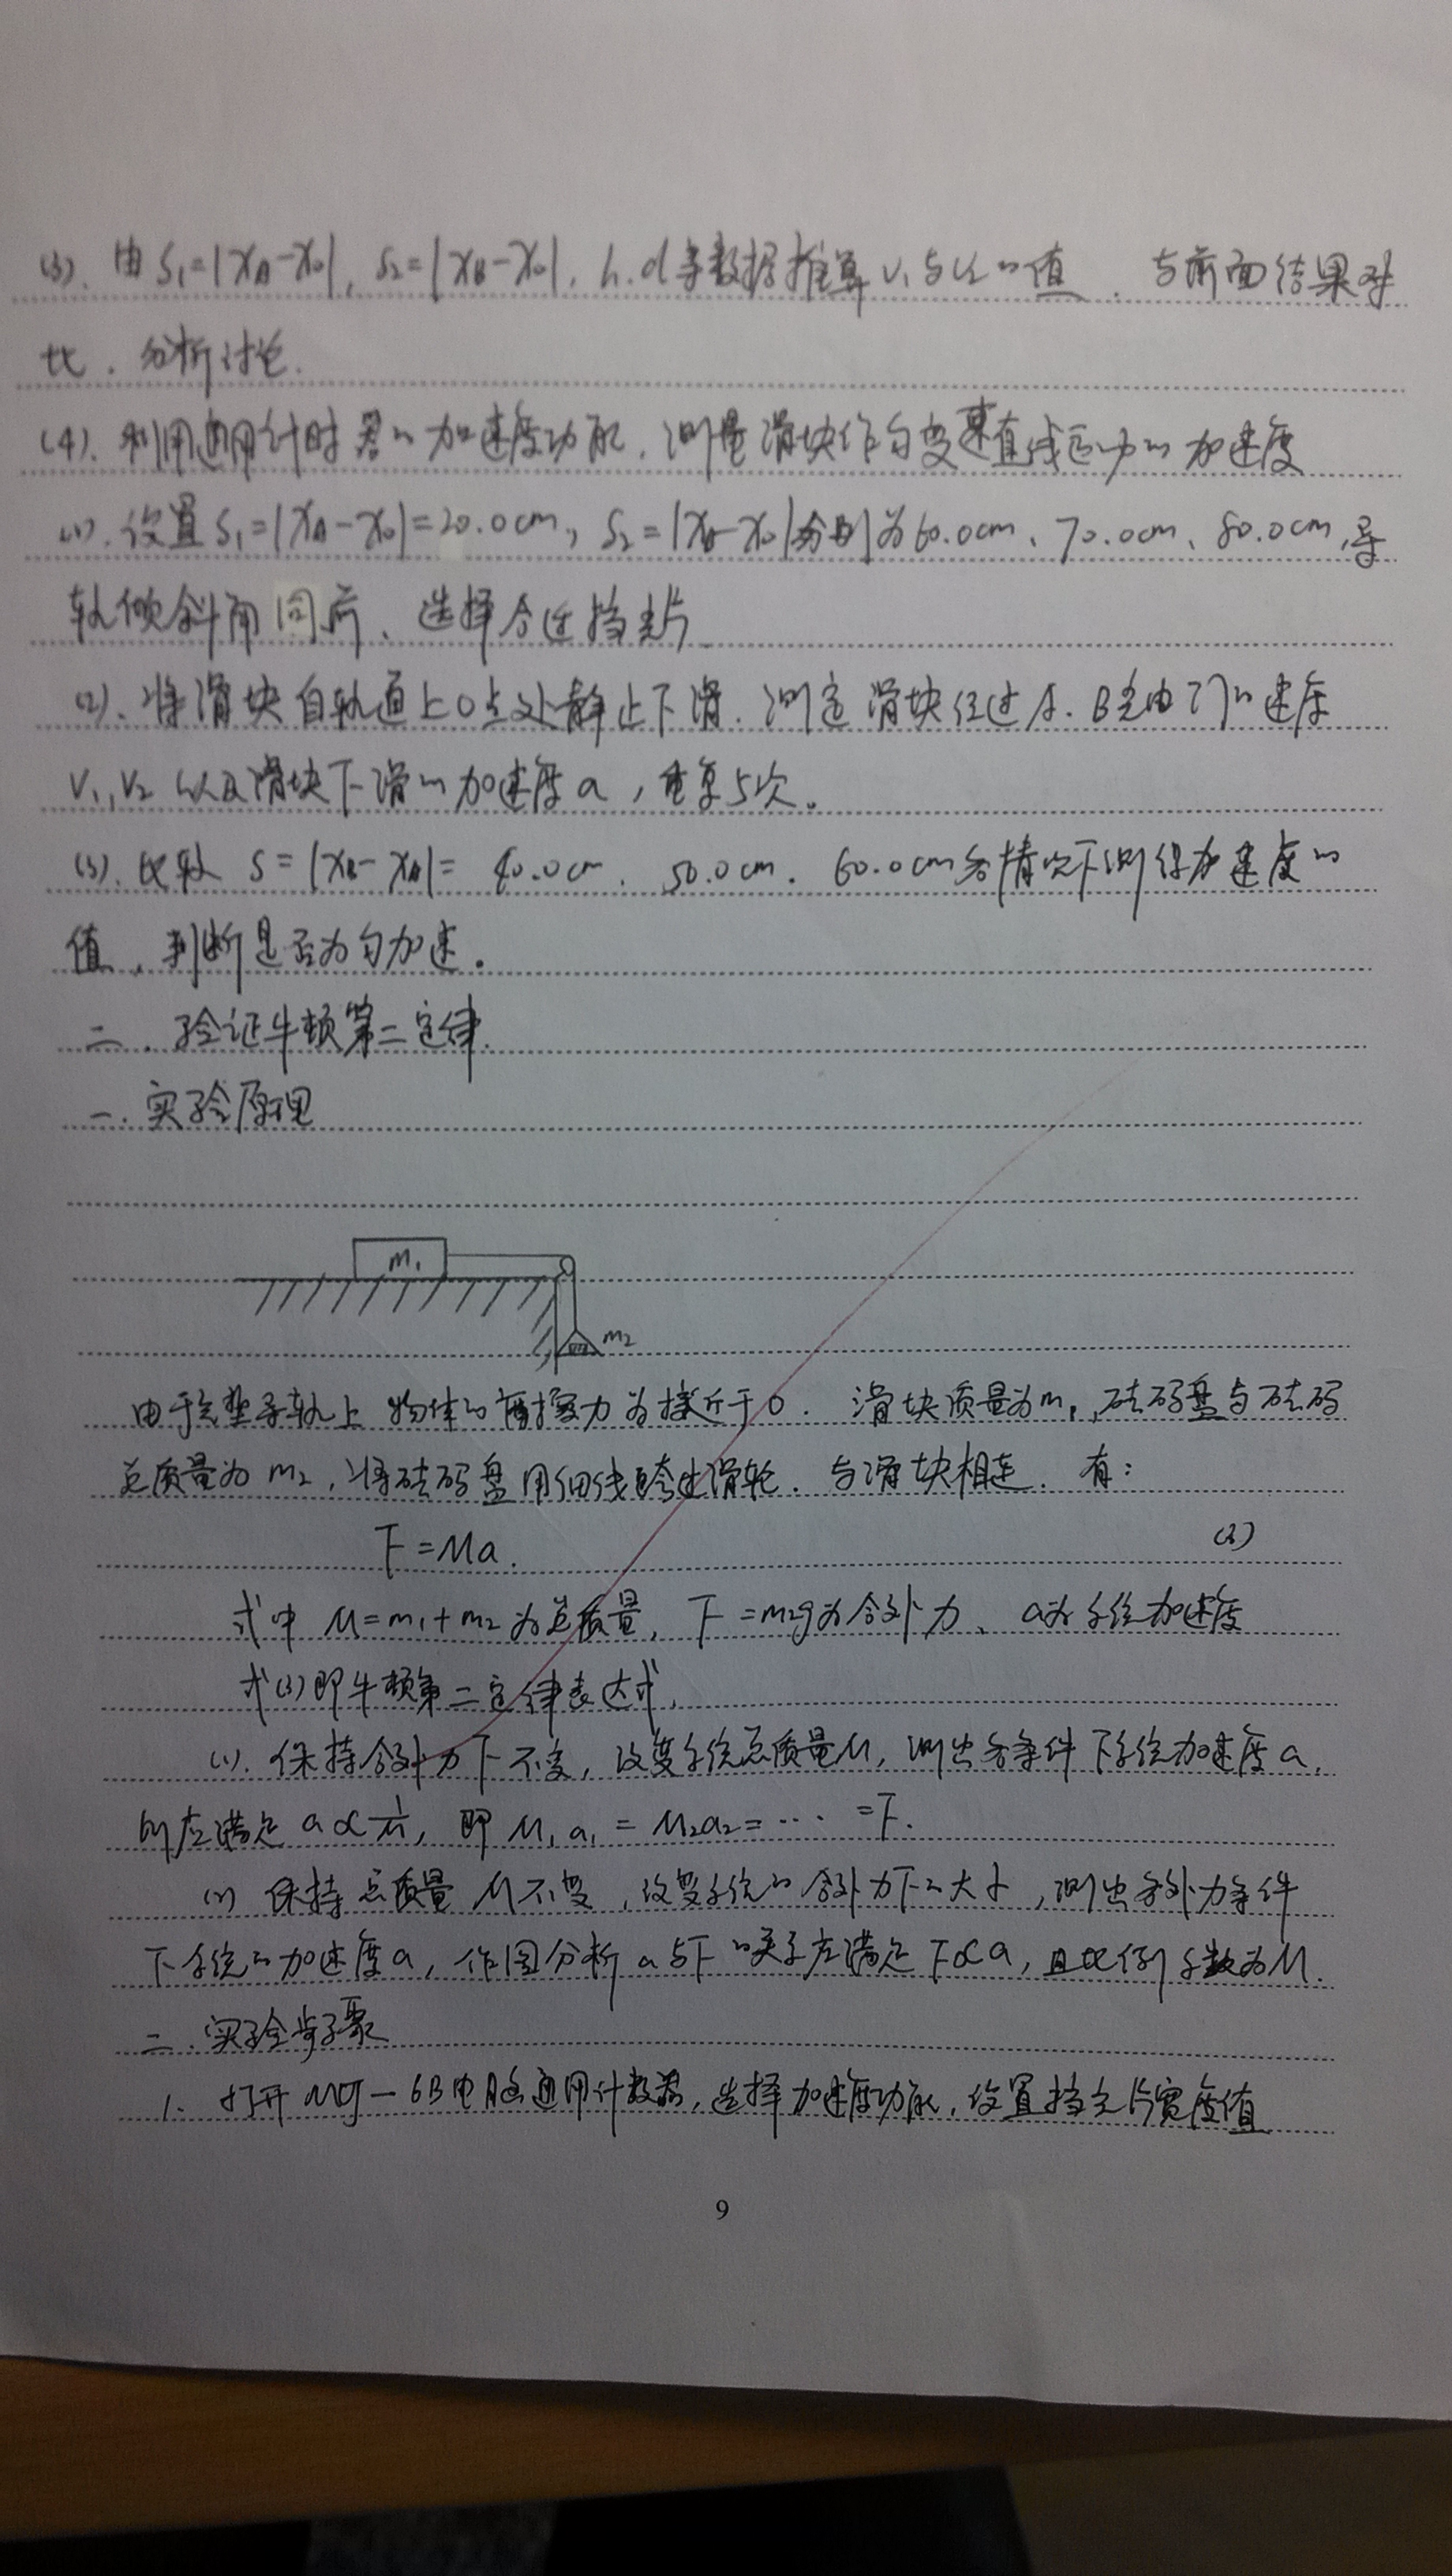 (3). 由S₁=|X_A-X₀|, S₂=|X_B-X₀|, h.d等数据推算V₁与V₂的值, 与前面结果对
比. 分析讨论.
(4). 利用通用计时器的加速度功能, 测量滑块作匀变速直线运动的加速度
(1). 设置S₁=|X_A-X₀|=20.0cm, S₂=|X_B-X₀|分别为60.0cm、70.0cm、80.0cm,导
轨倾斜角同前、选择合适挡光片
(2). 将滑块自轨道上0点处静止下滑. 测定滑块经过A.B光电门的速度
V₁,V₂以及滑块下滑的加速度a,重复5次。
(3). 比较 S=|X_B-X_A|= 40.0cm. 50.0cm. 60.0cm各情况下测得加速度的
值, 判断是否为匀加速.
二. 验证牛顿第二定律.
一. 实验原理
m₁
m₂
由于气垫导轨上物体的摩擦力为接近于0. 滑块质量为m₁,砝码盘与砝码
总质量为m₂,将砝码盘用细线跨过滑轮. 与滑块相连. 有:
F=Ma. (3)
式中 M=m₁+m₂为总质量, F=m₂g为合外力、 a为系统加速度
式(3)即牛顿第二定律表达式.
(1). 保持合外力F不变, 改变系统总质量M, 测出各条件下系统加速度a.
则应满足 a∝1/M, 即 M₁a₁=M₂a₂=… =F.
(2) 保持总质量M不变,改变系统的合外力F的大小,测出各外力条件
下系统的加速度a, 作图分析a与F的关系应满足F∝a, 且比例系数为M.
二. 实验步骤
1. 打开MUJ-6B电脑通用计数器, 选择加速度功能. 设置挡光片宽度值
9